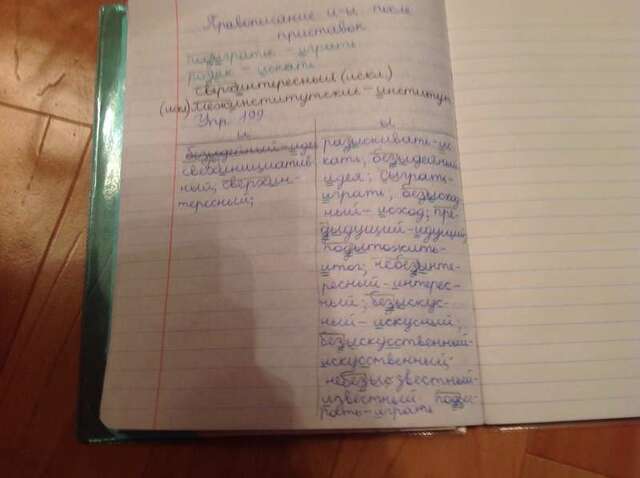 Правописание и-ы после
приставок
подыграть - играть
розыск - искать
сверхинтересный (искл.)
(искл) Межинститутский - институт
Упр. 199
и
безыдейный - идея
сверхинициатив-
ный; сверхин-
тересный;
ы
разыскивать - ис-
кать, безыдейный-
идея; сыграть-
играть, безысход-
ный - исход; пре-
дыдущий - идущий;
подытожить-
итог; небезынте-
ресный - интерес-
ный; безыскус-
ный - искусный;
безыскусственный-
искусственный;
небезызвестный-
известный поды-
грать - играть